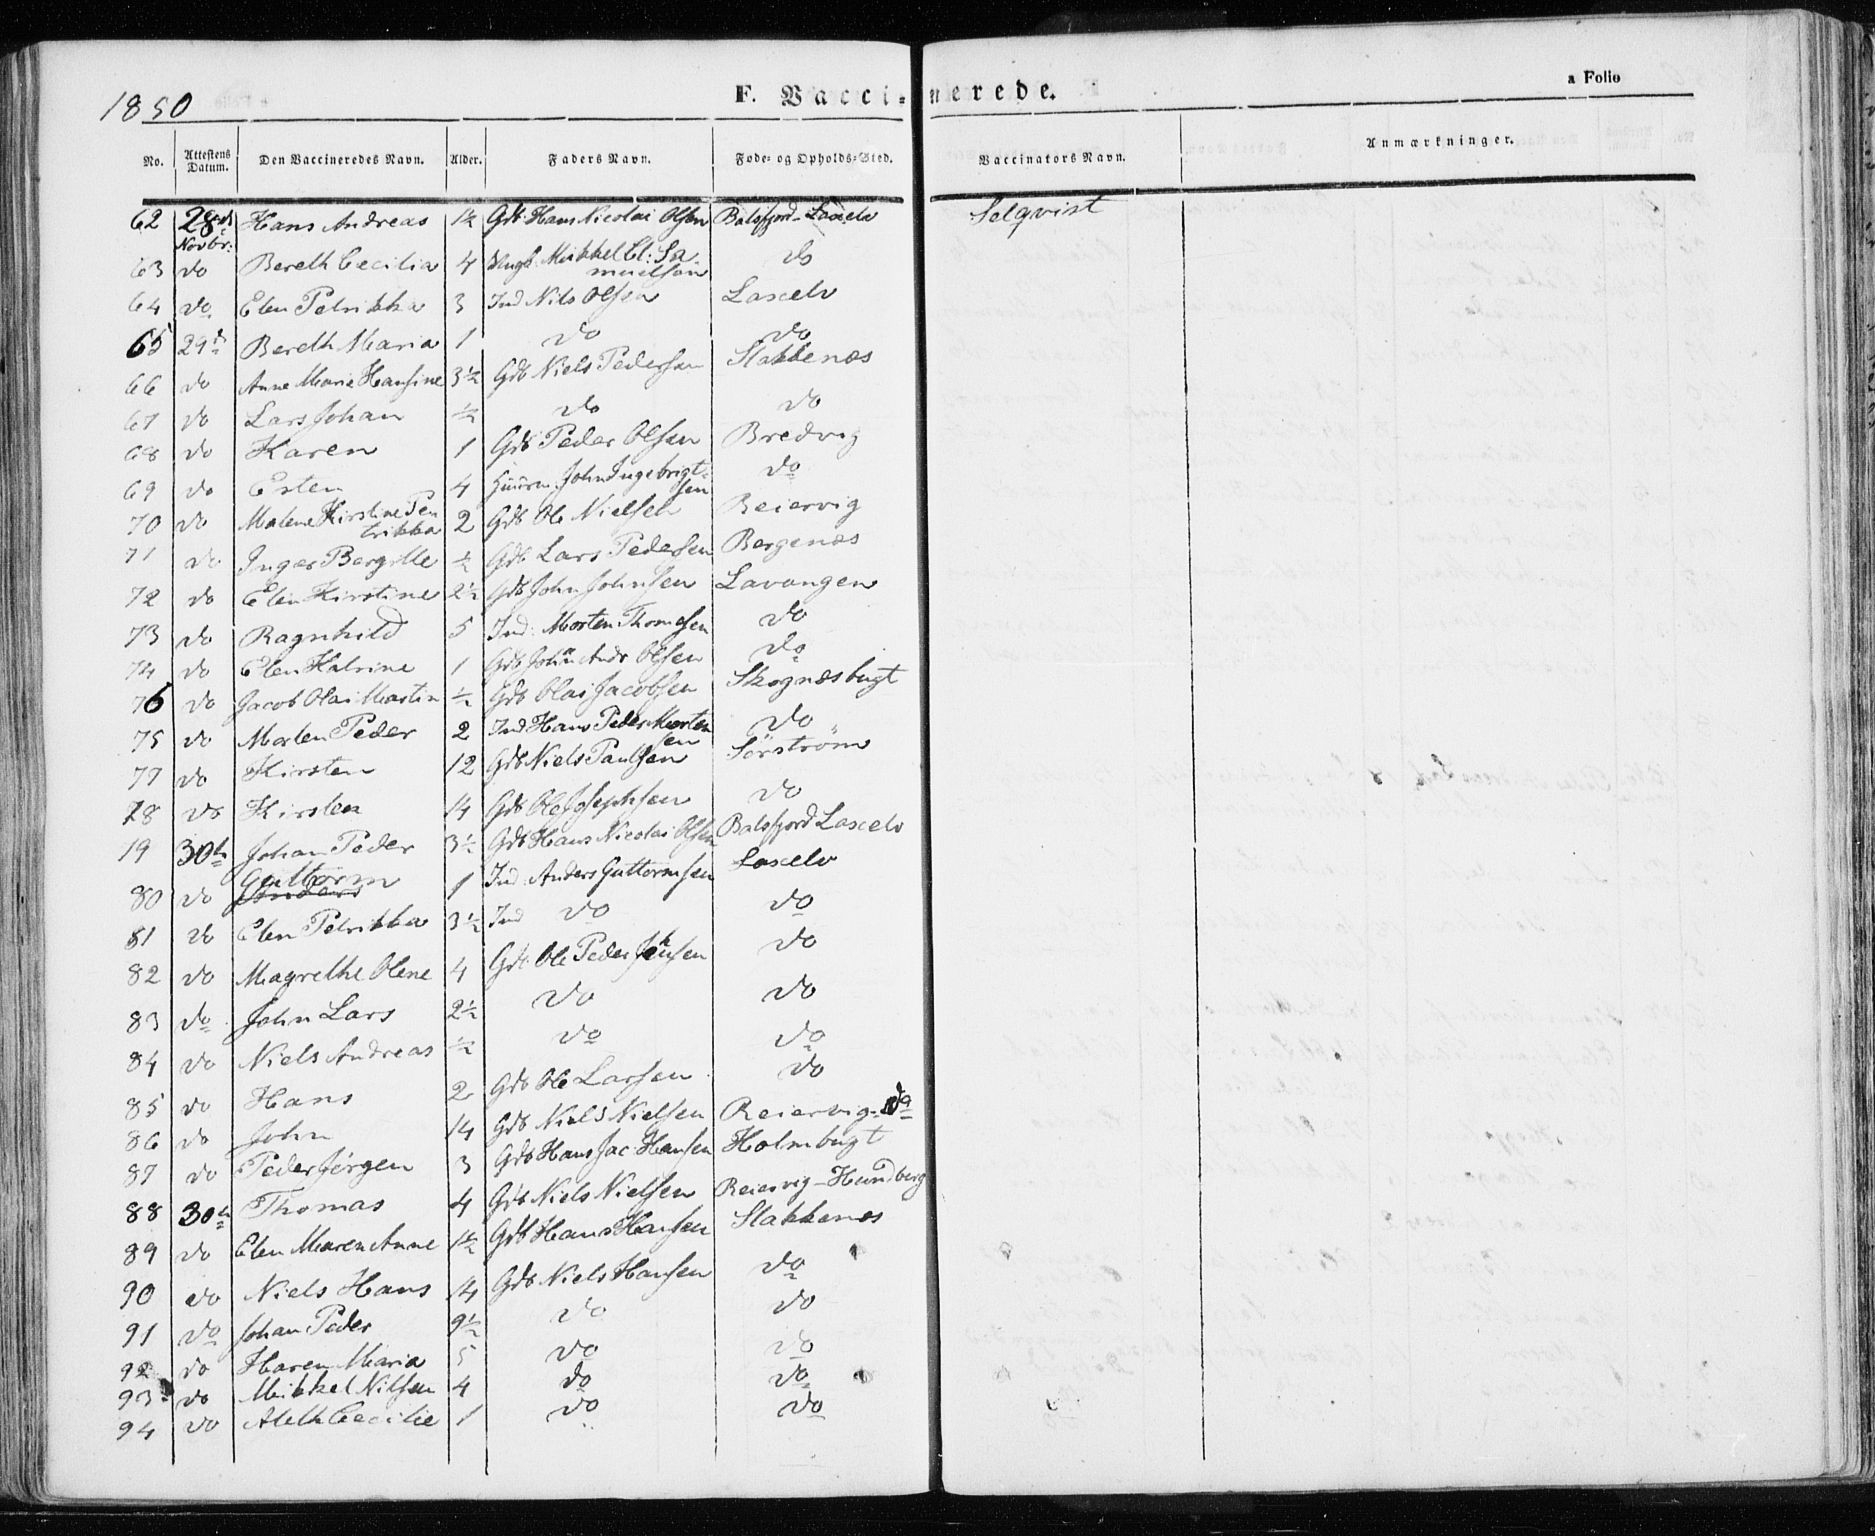 1850
F. Vaccinerede.
a Folio
No. | Attestens Datum. | Den Vaccineredes Navn. | Alder. | Faders Navn. | Føde- og Opholds-Sted. | Vaccinators Navn. | Anmærkninger.
62 | 28de Novbr: | Hans Andreas | 1½ | Gdb: Hans Nicolai Olsen | Balsfjord-Laxelv | Selqvist
63 | do | Bereth Cecilia | 4 | Mikkel Cl: Samuelsøn | do
64 | do | Elen Petrikka | 3 | Ind Nils Olsen | Laxelv
65 | 29d | Bereth Maria | 1 | do | do
66 | do | Anne Marie Hansine | 3½ | Gdb Niels Pedersen | Slakkenæs
67 | do | Lars Johan | ½ | do | do
68 | do | Karen | 1 | Gdb Peder Olsen | Bredvig
69 | do | Esten | 4 | Huusm. John Ingebrigtsen | do
70 | do | Malene Kirstine Petrikka | 2 | Gdb Ole Nielsen | Reiervig
71 | do | Inger Bergitte | ½ | Gdb Lars Pedersen | Bergenæs
72 | do | Elen Kirstine | 2½ | Gdb John Johnsen | Lavangen
73 | do | Ragnhild | 5 | Ind: Morten Thomesen | do
74 | do | Elen Katrine | 1 | Gdb Johan Andr Olsen | do
76 | do | Jacob Olai Martin | ½ | Gdb Olai Jacobsen | Skognæsbugt
75 | do | Morten Peder | 2 | Ind Hans Peder Mortensen | do
77 | do | Kirsten | 12 | Gdb Niels Paulsen | Sørstrøm
78 | do | Kirsten | 14 | Gdb Ole Josephsen | do
79 | 30te | Johan Peder | 3½ | Gdb Hans Nicolai Olsen | Balsfjord Laxelv
80 | do | Guttorm Anders | 1 | Ind: Anders Guttormsen | Laxelv
81 | do | Elen Petrikka | 3½ | Ind do | do
82 | do | Magrethe Olene | 4 | Gdb. Ole Peder Johnsen | do
83 | do | John Lars | 2½ | do | do
84 | do | Niels Andreas | ½ | do | do
85 | do | Hans | 2 | Gdb Ole Larsen | do
86 | do | John | 14 | Gdb Niels Nielsen | Reiervig - do
87 | do | Peder Jørgen | 3 | Gdb Hans Jac: Hansen | Holmbugt
88 | 30te | Thomas | 4 | Gdb Niels Nielsen | Reiervig-Hundberg
89 | do | Elen Maren Anne | 1½ | Gdb Hans Hansen | Slakkenæs
90 | do | Niels Hans | 14 | Gdb Niels Hansen | do
91 | do | Johan Peder | 9½ | do | do
92 | do | Karen Maria | 5 | do | do
93 | do | Mikkel Nilsen | 4 | do | do
94 | do | Aleth Cecilie | 1 | do | do